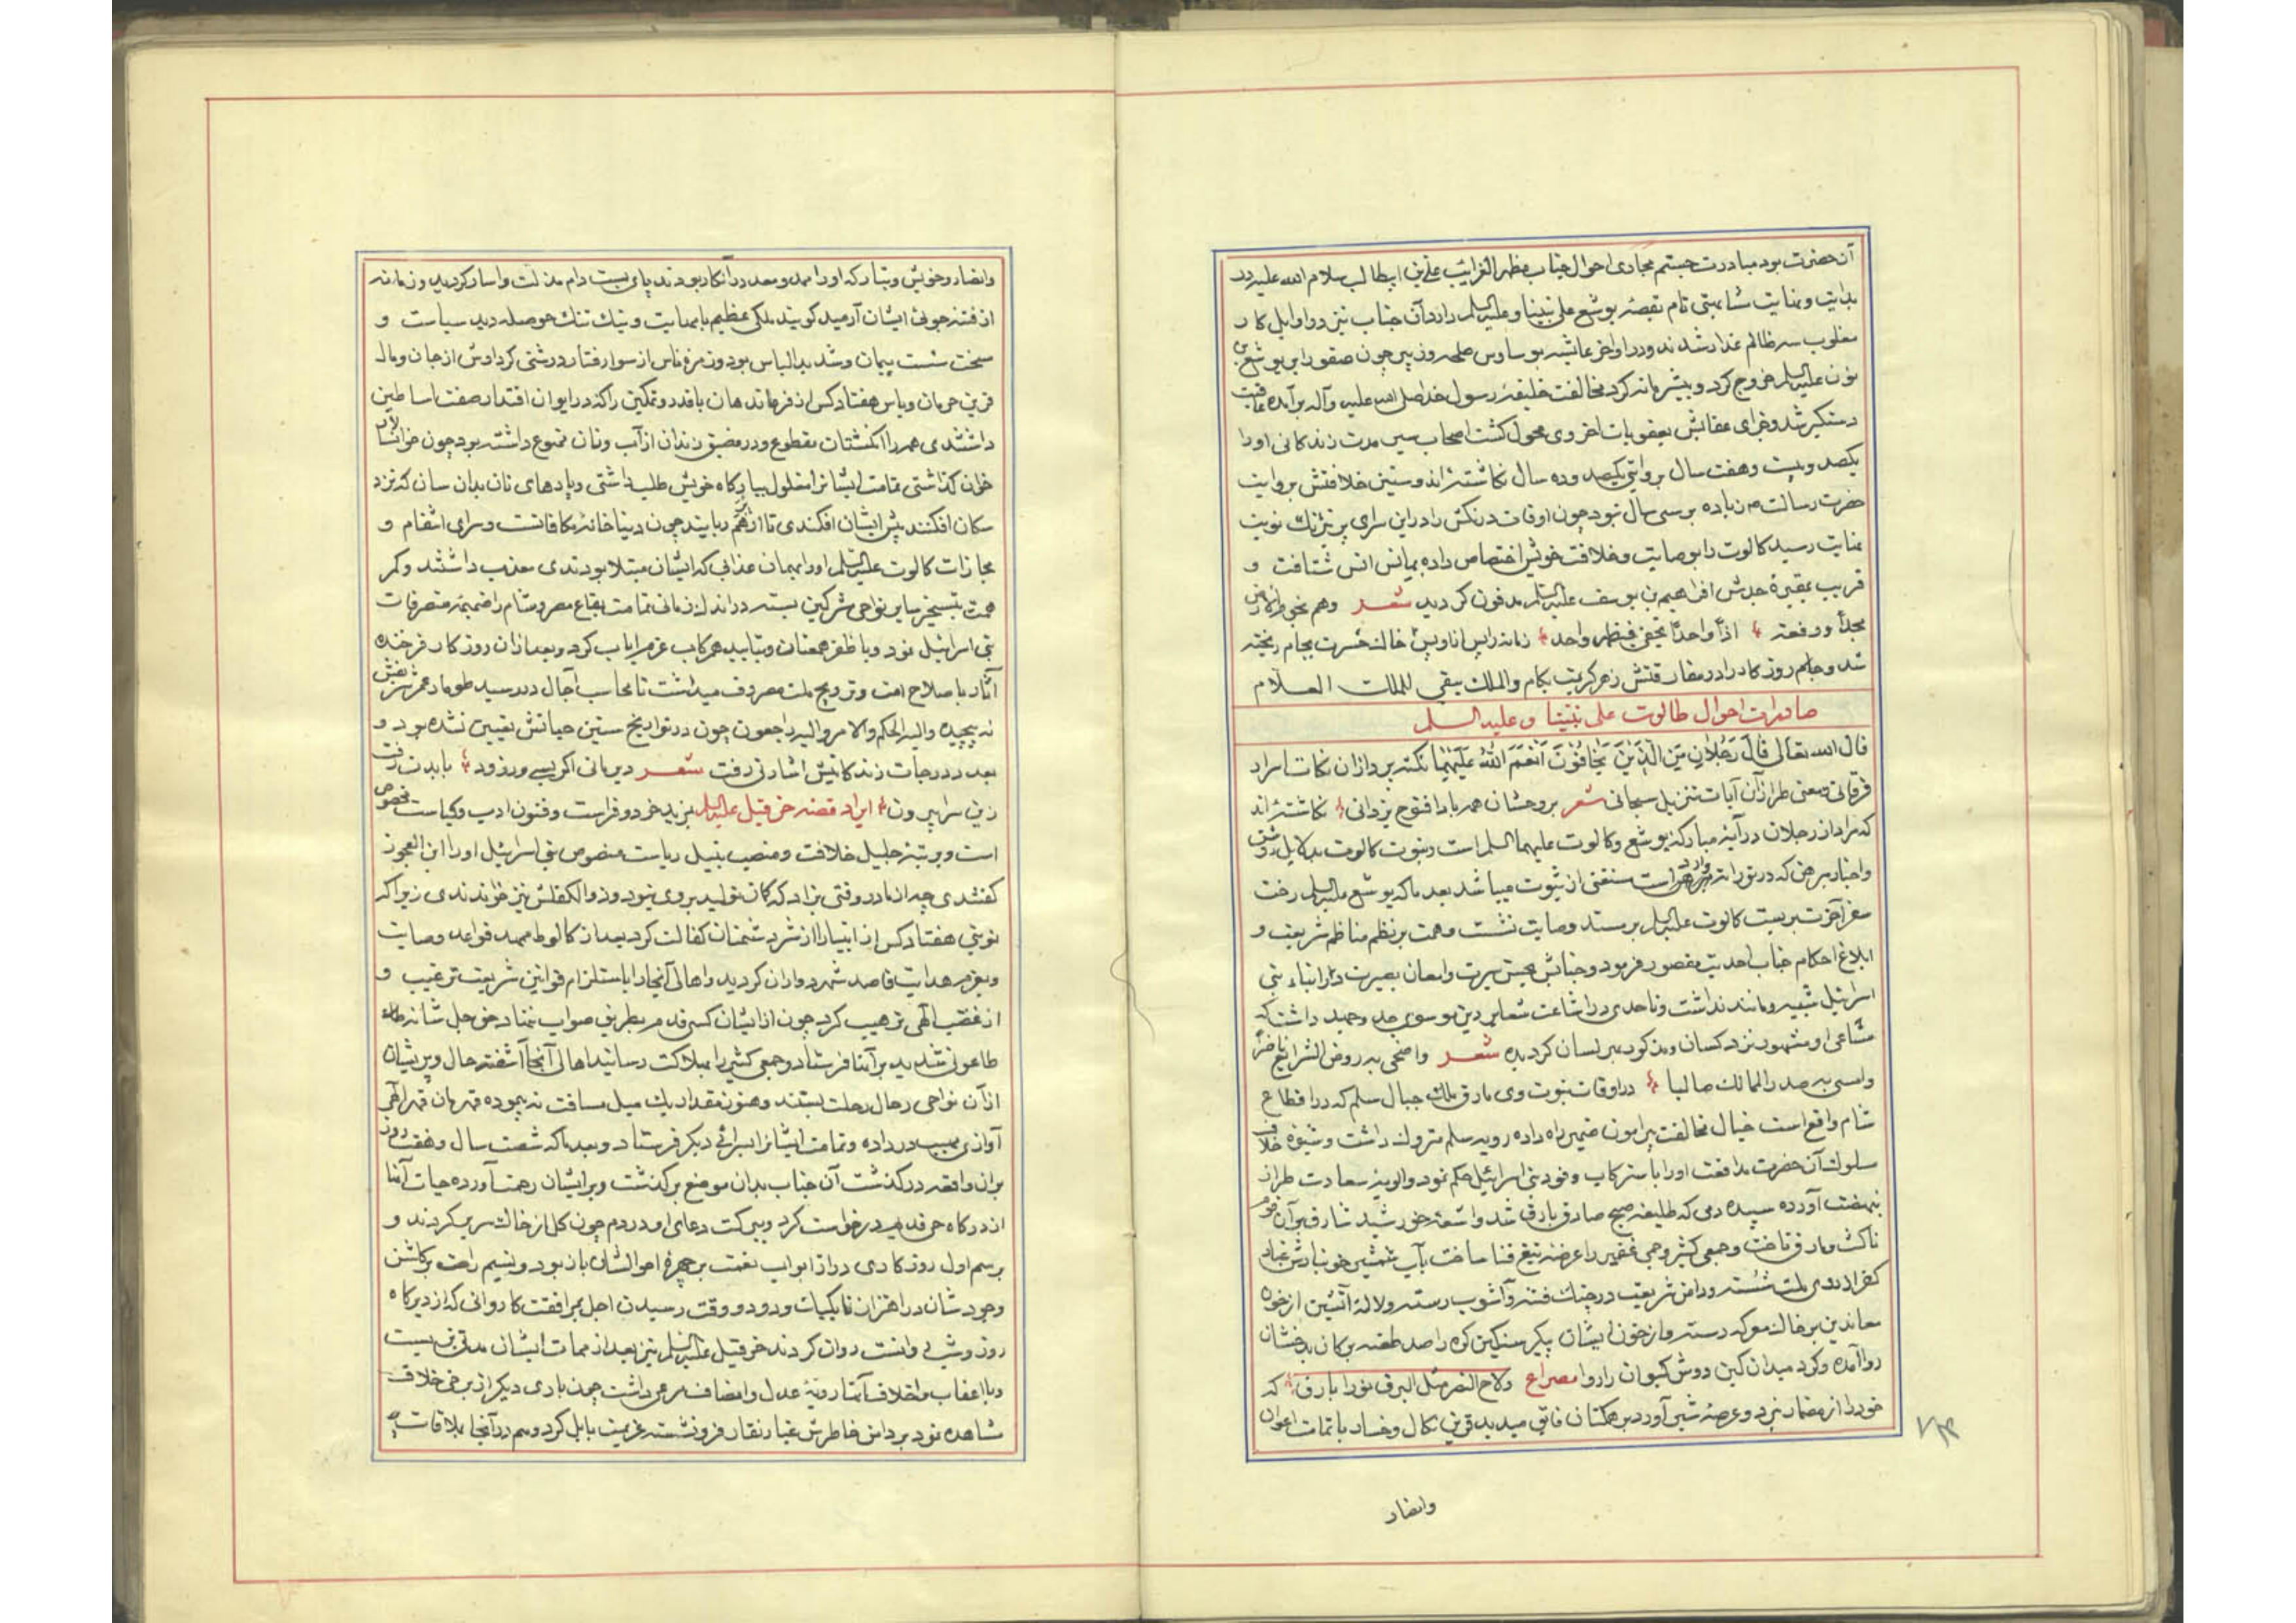 آن حضرت بود مبادرت جستم مجاری احوال جناب مظهر الغرائب علی بن ابیطالب سلام الله علیه در
بدایت و نهایت شباهتی تام بقصه یوشع علی نبینا و علیه السلم دارد آن جناب نیز در اوایل کار
مغلوب سه ظالم غدار شدند و در اواخر عایشه بوساوس طلحه و زبیر چون صفورا بر یوشع بن
نون علیه السلم خروج کرد و بیشرمانه کرد مخالفت خلیفه رسول خدا صلی الله علیه و آله برآمده عاقبت
دستگیر شد و جزای عقابش بعقوبات اخروی محول کشت اصحاب سیر مدت زندکانی او را
یکصد و بیست و هفت سال بروایتی یکصد و ده سال نکاشته‌اند و سنین خلافتش بروایت
حضرت رسالت ص زیاده بر سی سال نبود چون اوقات درنکش را در این سرای پر نیرنک نوبت
بنهایت رسید کالوت را بوصایت و خلافت خویش اختصاص داده بمیانس انس شتافت و
قریب بمقبره جدش افراهیم بن یوسف علیه السلم مدفون کردید شعر وهم نجوم الارض
مجداً ورفعة اذا واحداً تخفی فیظهر واحد زمانه را پس از او پس خاک حسرت بجام ریخته
شد و جام روزکار را در مفارقتش زهر کربت بکام والملک یبقی للملک العلام
صادرات احوال طالوت علی نبینا و علیه السلم
قال الله تعالی قَالَ رَجُلَانِ مِنَ الَّذِینَ یَخَافُونَ اَنْعَمَ اللهُ عَلَیْهِمَا نکته پردازان نکات اسرار
فرقانی و معنی طرازان آیات تنزیل سبحانی شعر بر وحشان همه بادا فتوح یزدانی نکاشته‌اند
که مراد از رجلان در آیه مبارکه یوشع و کالوت علیهما السلم است و نبوت کالوت بدلایل روشن
و اخبار مبرهن که در توراة وارد است مستغنی از ثبوت میباشد بعد ما که یوشع علیه السلم رخت
سفر آخرت بربست کالوت علیه السلم بر مسند وصایت نشست و همت بر نظم مناظم شریعت و
ابلاغ احکام جناب احدیت مقصور فرمود و جنابش بحسن سیرت و امعان بصیرت در ابناء بنی
اسرائیل شبیه و مانند نداشت و تا حدی در اشاعت شعایر دین موسوی جد و جهد داشت که
مشاعی او مشهود نزد کسان و مذکور هر لسان کردیده شعر واضحی به روض الشرایع ناضراً
وامسی به صدر الممالک حالیا در اوقات نبوت وی بارق ملک جبال سلم که در اقطاع
شام واقع است خیال مخالفت پیرامون ضمیر راه داده رویه سلم متروک داشت و شیوه خلاف
سلوک آن حضرت مدافعت او را با سترکاب وفود بنی اسرائیل حکم نمود و الویه سعادت طراز
بنهضت آورده سپیده دمی که طلیعه صبح صادق بارق شد و اشعه خورشید شارق بر آن قوم
ناکث مارق تاخت و جمعی کثیر و جمی غفیر را عرضه تیغ فنا ساخت بآب شمشیر خونبارش غبار
کفر از روی ملت شسته و دامن شریعت در چنک فتنه و آشوب رسته و لاله آتشین از خون
معاندین بر خاک معرکه دسته و از خون ایشان پیکر سنکین کوه را صد طعنه بر کان بدخشان
روا آمده و کرد میدان کین دوش کیوان را ردا مصراع ولاح النصر مثل البرق نورا بارق که
خود را از مضمار نبرد و عرصه شیر آورد بر همکنان فایق میدید قرین نکال و خسار با تمامت اعوان
وانصار
و انصار و خویش و تبار که او را ممد و معد در آنکار بودند پای بست دام مذلت و اسار کردید و زمانه
از فتنه جوئی ایشان آرمید کویند ملکی عظیم بامهابت و نیک تنک حوصله دید سیاست و
سخت سست پیمان و شدید الباس بود و زمره ناس از سوء رفتار و درشتی کردارش از جان و مال
قرین حرمان و یاس هفتاد کس از فرماندهان با قدر و تمکین را که در ایوان اقتدار صفت اساطین
داشتندی همه را انکشتان مقطوع و در مضیق زندان از آب و نان ممنوع داشته بود چون خوانسالار
خوان کذاشتی تمامت ایشانرا مغلول ببارکاه خویش طلب داشتی و پاره‌های نان بدان سان که نزد
سکان افکنند پیش ایشان افکندی تا از هم ربایند چون دنیا خانه مکافاتست و سرای انتقام و
مجازات کالوت علیه السلم او را بهمان عذابی که ایشان مبتلا بودندی معذب داشتند و کمر
همت بتسخیر سایر نواحی مشرکین بسته در اندک زمانی تمامت بقاع مصر و شام را ضمیمه متصرفات
بنی اسرائیل نمود و با ظفر همعنان و بتایید همرکاب عزم ایاب کرد و بعد از آن روزکار فرخنده
آثار باصلاح امت و ترویج ملت مصروف میداشت تا محاسب آجال در رسید طومار عمر شریفش
نه پیچیده والیه الحکم والامر والیه راجعون چون در تواریخ سنین حیاتش تعیین نشده بود و
بعد درجات زندکانیش اشارتی رفت شعر دیر مانی اکر بسی ور زود بایدت رفت
زین سرا بیرون ایراد قصه حزقیل علیه السلم بمزید خرد و فراست و فنون ادب و کیاست مخصوص
است و برتبه جلیل خلافت و منصب نبیل ریاست منصوص بنی اسرائیل او را ابن العجوز
کفتندی چه از مادر وقتی بزاد که کان تولید بر وی نبود و ذوالکفلش نیز خواندندی زیرا که
نوبتی هفتاد کس از انبیا را از شر دشمنان کفالت کرد بعد از کالوط ممهد قواعد وصایت
و بعزم هدایت قاصد شهر دواران کردید و اهالی آنجا را باستلزام قوانین شریعت ترغیب و
از غضب الهی ترهیب کرد چون از ایشان کسی قدم بر طریق صواب ننهاد حق جل شانه
طاعونی شدید بر آنها فرستاد و جمعی کثیر را بهلاکت رسانید اهالی آنجا آشفته حال و پریشان
از آن نواحی رحال رحلت بستند و هنوز مقدار یک میل مسافت نه پیموده قهرمان قهر الهی
آوازی مهیب در داده و تمامت ایشانرا بسرای دیکر فرستاد و بعد ما که شصت سال و هفت روز
بران واقعه درکذشت آن جناب بدان موضع برکذشت و بر ایشان رحمت آورده حیات آنها
از درکاه حی قدیم درخواست کرد و ببرکت دعای او در دم چون کل از خاک سر بر کردند و
برسم اول روزکاری دراز ابواب نعمت بر چهره احوالشان باز بود و نسیم راحت بر کلشن
وجودشان در اهتزاز تا بکیات ورود و وقت رسیدن اجل بمرافقت کاروانی که از دیرکاه
روز و شب روانست روان کردند حزقیل علیه السلم نیز بعد از ممات ایشان مدتی بزیست
و با اعقاب و اخلاف آنها رویه عدل و انصاف مرعی داشت چون بادی دیکر از برخی خلاف
مشاهده نمود بر دامن خاطرش غبار نقار فرونشسته عزیمت بابل کرد و هم در آنجا بملاقات